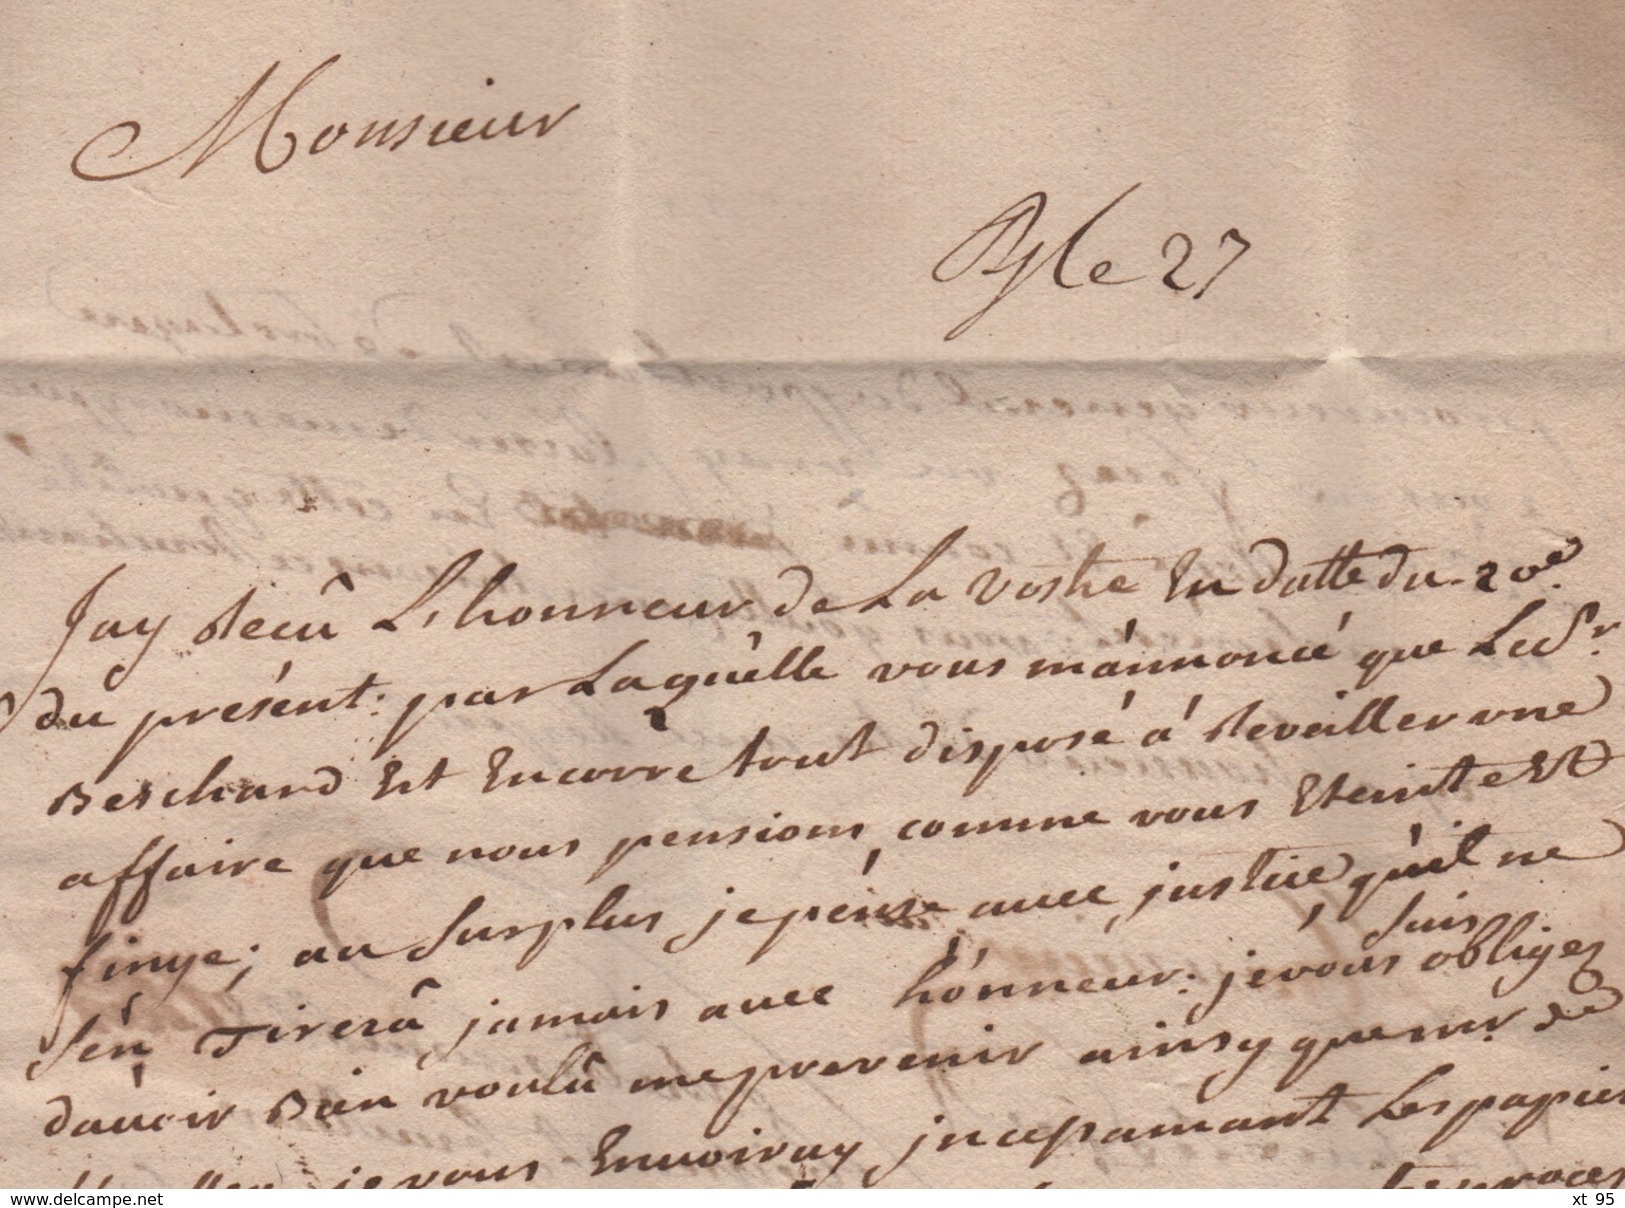 Monsieur
le 27
Jay Recû L'honneur de La Vostre En datte du 20e
du présent: par Laquèlle vous m'annoncé que Le Sr.
Berchard Est Encorre tout disposé à Reveiller une
affaire que nous pensions comme vous Eteinte Et
finye; au surplus je pense avec justice qu'il ne
s'en Tirerâ jamais avec hónneur: je vous suis obligez
d'avoir Bien voulû me prevenir ainsy que mr. De
je vous Envoiray jncepamant Les papier
www.delcampe.net
xt_95